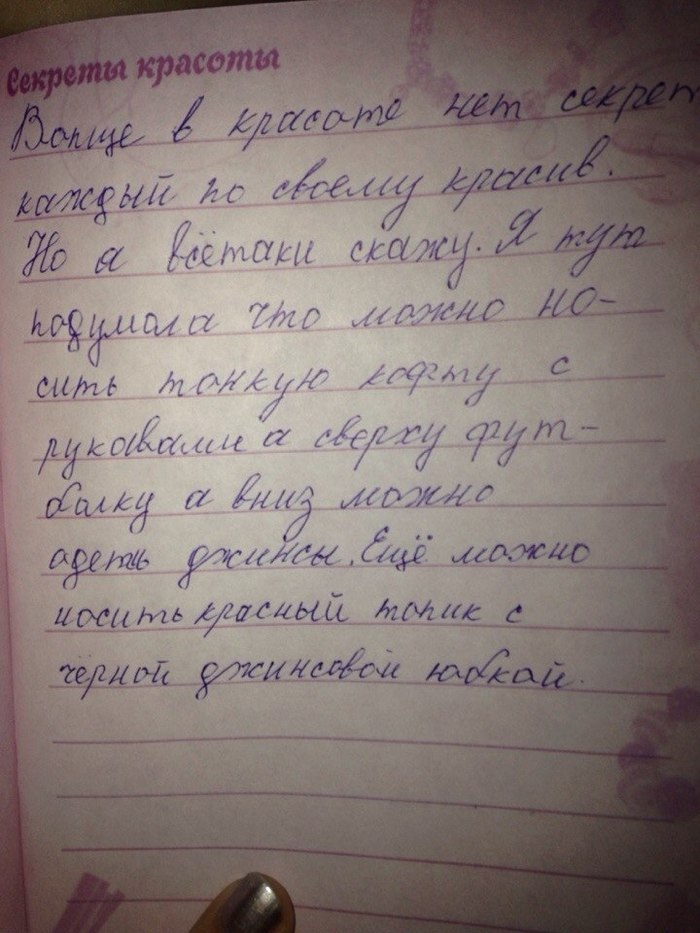 Секреты красоты
Вопще в красоте нет секрет
каждый по своему красив.
Но я всётаки скажу. Я тут
подумала что можно но-
сить тонкую кофту с
рукавами а сверху фут-
болку а вниз можно
адеть джинсы. Ещё можно
носить красный топик с
чёрной джинсовой юбкай.